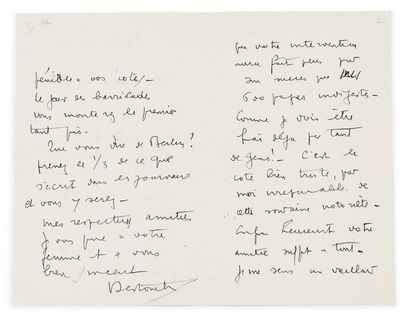 à vos côtés -
le jour de barricades
vous monterez le premier
tant pis.
Que vous dire de Berlin!
prenez le 1/3 de ce que
s'écrit dans les journaux
et vous y serez -
mes respectueux amitiés
je vous prie à votre
femme et à vous
bien
Destouches
2
que votre intervention
aura fait plus par
son succès que mes
600 pages indigestes -
Comme je dois être
haï déjà par tant
de gens! - C'est le
côté bien triste, par
moi irréparable de
cette soudaine notoriété -
Enfin votre
amitié suffit à tout -
Je me sens un vaillant